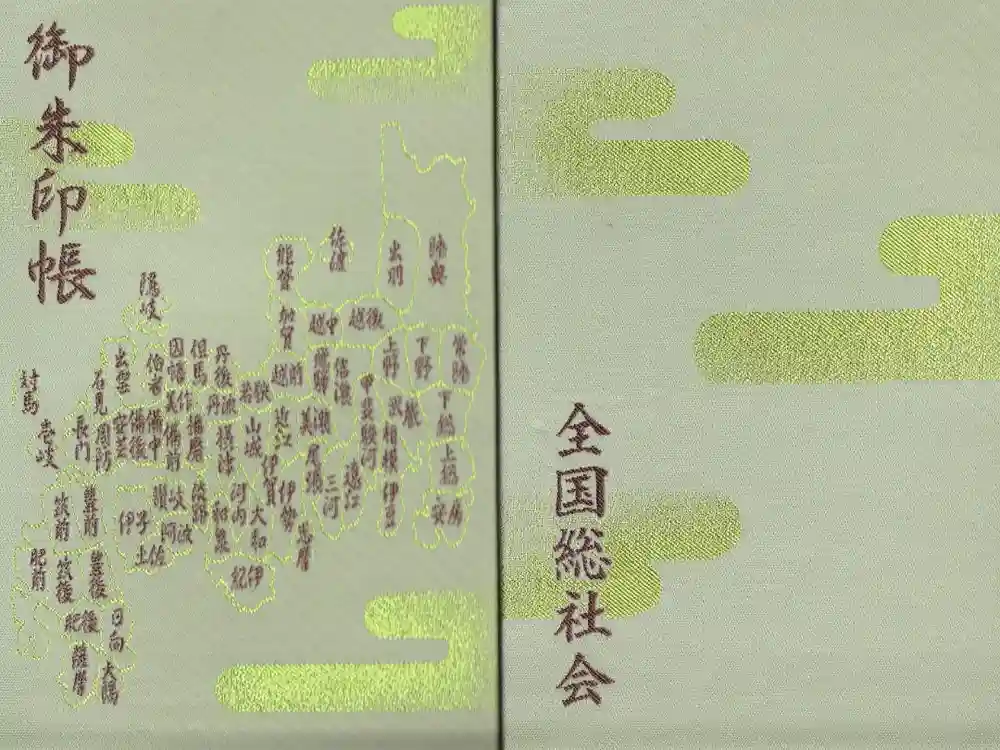 御朱印帳
陸奥
出羽
佐渡
能登
加賀
越中
越後
隠岐
常陸
下野
上野
信濃
飛騨
越前
若狭
丹後
但馬
因幡
伯耆
出雲
石見
対馬
壱岐
下総
武蔵
甲斐
駿河
相模
美濃
近江
山城
丹波
播磨
摂津
美作
備前
備中
備後
安芸
周防
長門
上総
安房
伊豆
遠江
三河
尾張
伊賀
伊勢
志摩
大和
河内
和泉
紀伊
淡路
讃岐
阿波
伊予
土佐
豊前
筑前
肥前
筑後
豊後
肥後
日向
薩摩
大隅
全国総社会